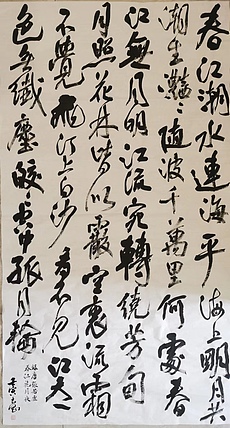 春江潮水連海平海上明月共
潮生灩〻随波千萬里何處春
江無月明江流宛轉繞芳甸
月照花林皆似霰空裏流霜
不覺飛汀上白沙看不見江天一
色無纖塵皎〻空中孤月輪
春江花月夜